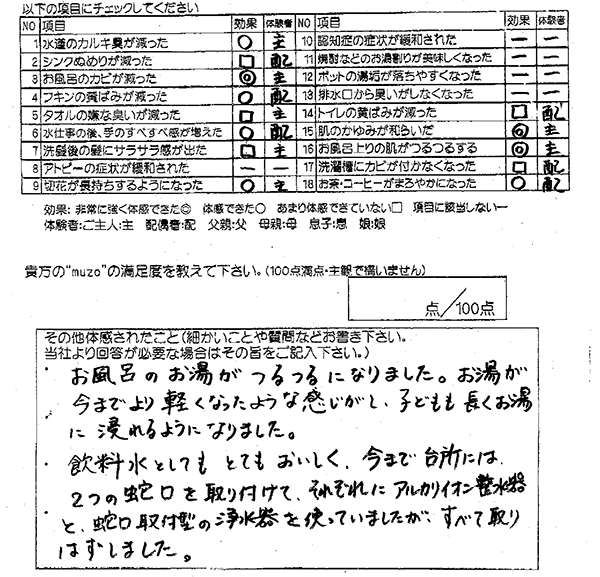 以下の項目にチェックしてください
NO 項目 効果 体験者 NO 項目 効果 体験者
1 水道のカルキ臭が減った ○ 主 10 認知症の症状が緩和された ー ー
2 シンクぬめりが減った □ 配 11 焼酎などのお湯割りが美味しくなった ー ー
3 お風呂のカビが減った ◎ 主 12 ポットの湯垢が落ちやすくなった ー ー
4 フキンの黄ばみが減った ○ 配 13 排水口から臭いがしなくなった ー ー
5 タオルの嫌な臭いが減った □ 主 14 トイレの黄ばみが減った □ 配
6 水仕事の後、手のすべすべ感が増えた ○ 配 15 肌のかゆみが和らいだ ◎ 主
7 洗髪後の髪にサラサラ感が出た □ 主 16 お風呂上りの肌がつるつるする ◎ 主
8 アトピーの症状が緩和された ー ー 17 洗濯槽にカビが付かなくなった □ 配
9 切花が長持ちするようになった ○ 主 18 お茶・コーヒーがまろやかになった ○ 配
効果: 非常に強く体感できた◎ 体感できた○ あまり体感できていない□ 項目に該当しないー
体験者:ご主人:主 配偶者:配 父親:父 母親:母 息子:息 娘:娘
貴方の“muzo”の満足度を教えて下さい。(100点満点・主観で構いません)
点/100点
その他体感されたこと(細かいことや質問などお書き下さい。
当社より回答が必要な場合はその旨をご記入下さい。)
・お風呂のお湯がつるつるになりました。お湯が
今までより軽くなったような感じがし、子どもも長くお湯
に浸れるようになりました。
・飲料水としてもとてもおいしく、今まで台所には、
2つの蛇口を取り付けて、それぞれにアルカリイオン整水器
と、蛇口取付型の浄水器を使っていましたが、すべて取り
はずしました。